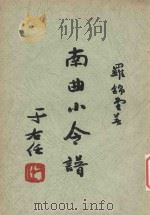 羅錦堂著
南曲小令譜
于右任